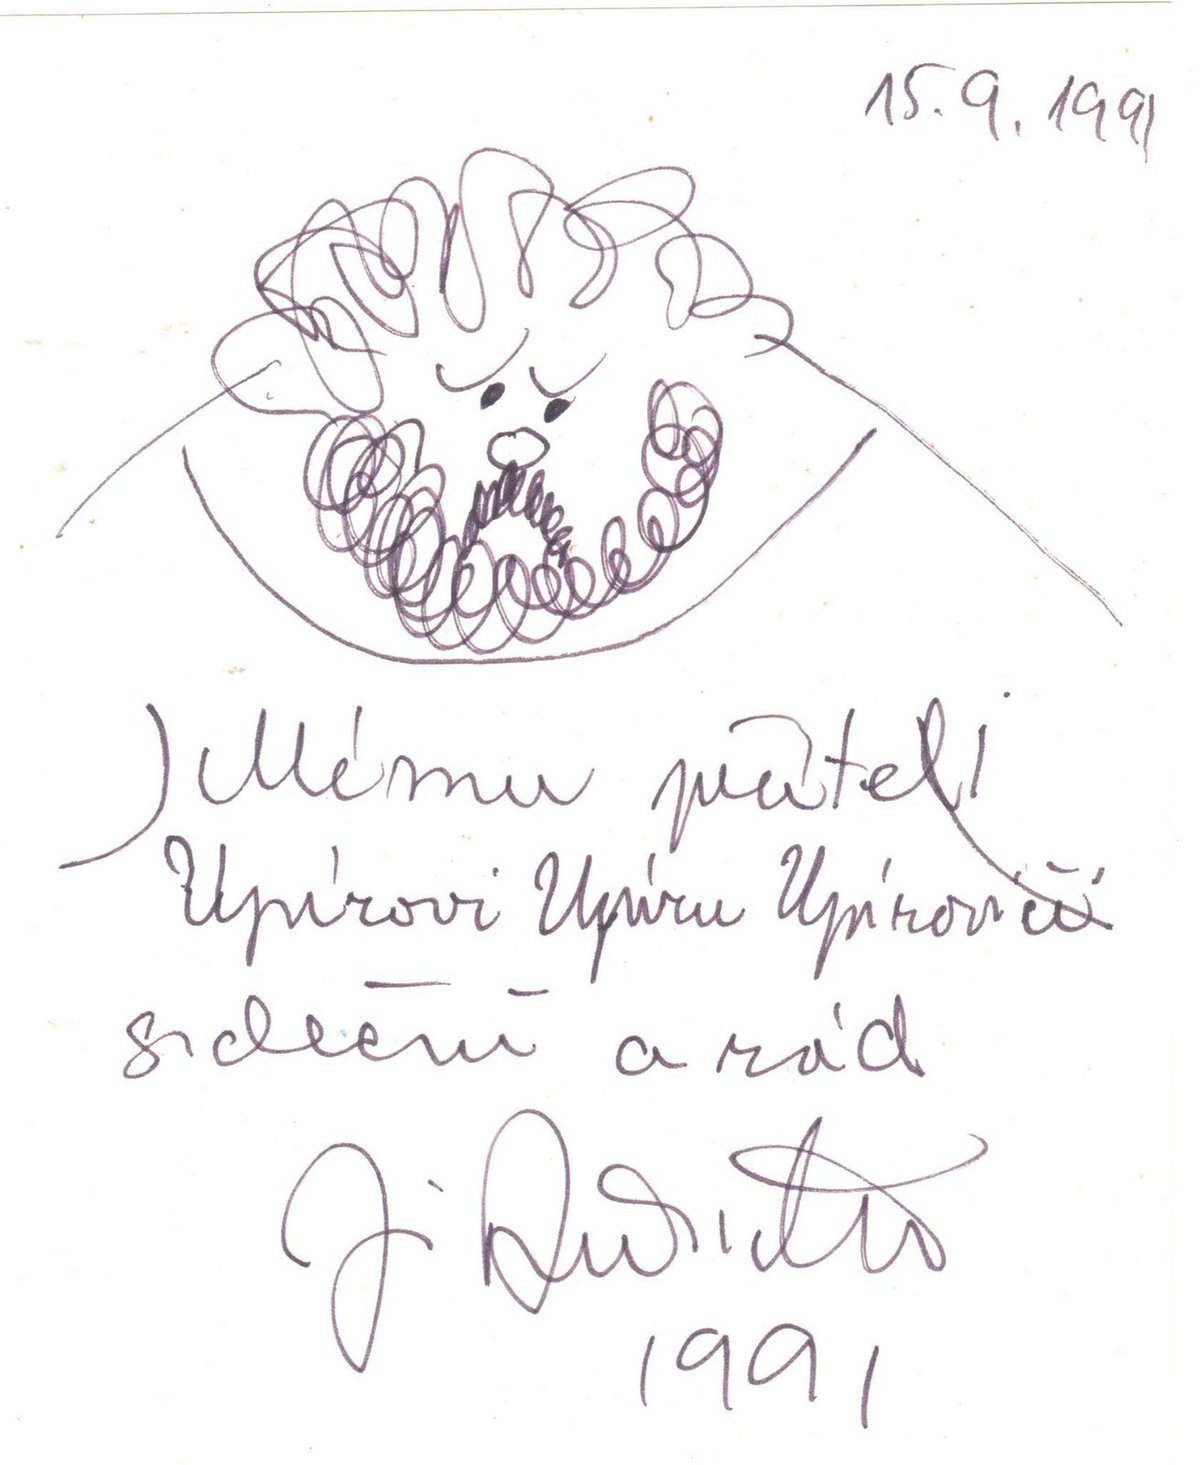 15. 9. 1991
Mému příteli
Upírovi Upíru Upírovičů
srdečně a rád
1991